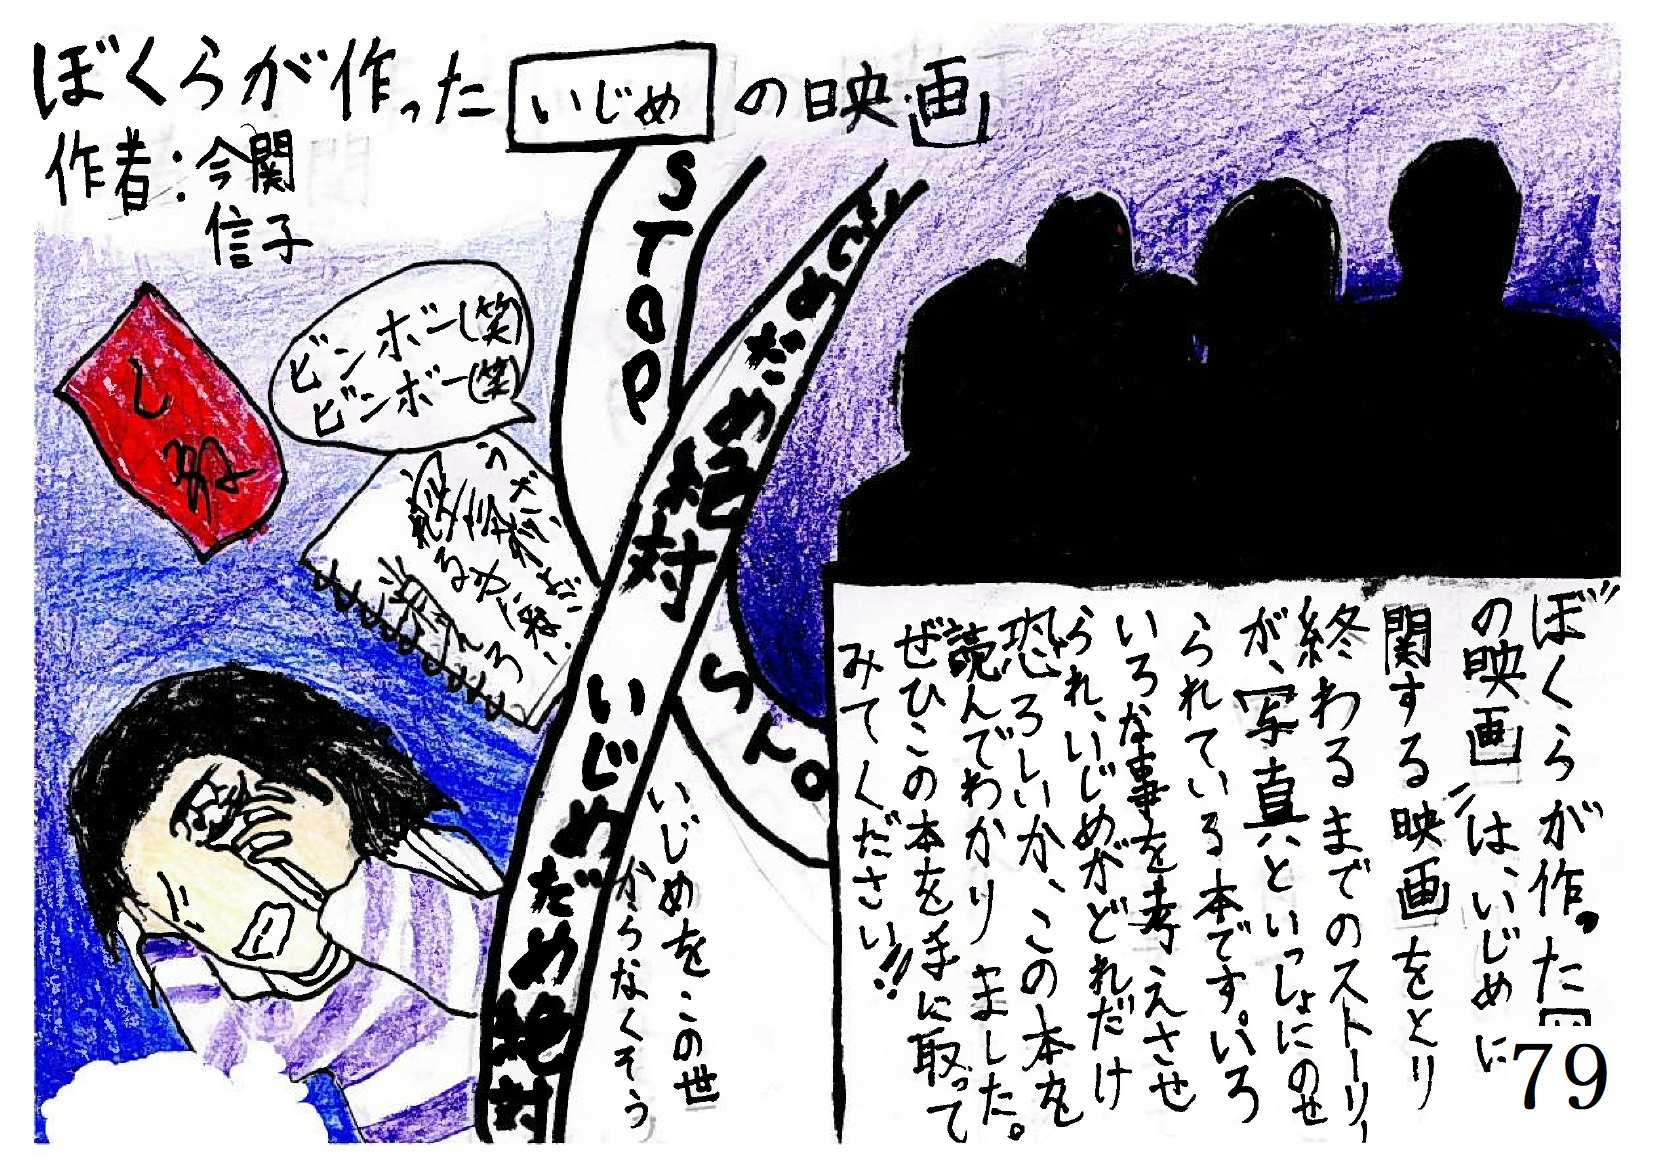 ぼくらが作った いじめ の映画
作者:今関
信子
STOP
じめだめ絶対
いじめだめ絶対
らん。
し
ビンボー(笑)
ビンボー(笑)
消えろ
いじめをこの世
からなくそう
ぼくらが作った
の映画」は、いじめに
関する映画をとり
終わるまでのストーリー
が、写真といっしょにのせ
られている本です。いろ
いろな事を考えさせ
られ、いじめがどれだけ
恐ろしいか、この本を
読んでわかりました。
ぜひこの本を手に取って
みてください!!
79